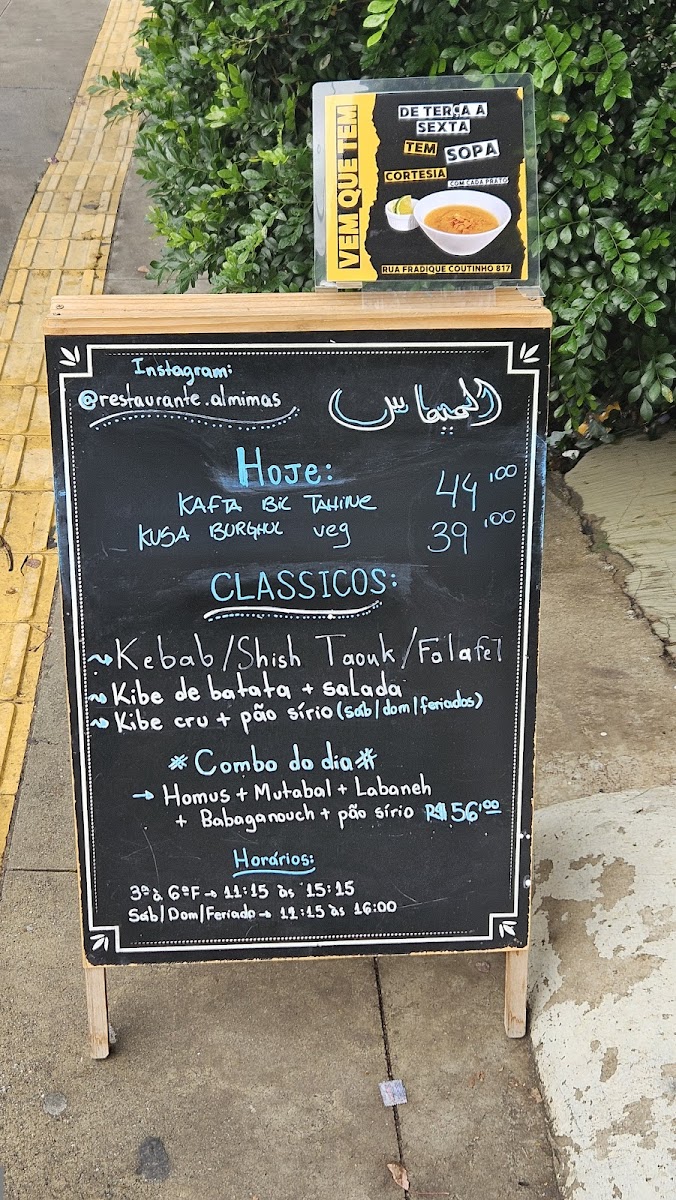 VEM QUE TEM
DE TERÇA A
SEXTA
TEM SOPA
CORTESIA
COM CADA PRATO
RUA FRADIQUE COUTINHO 817
Instagram:
@restaurante.almimas
الميماس
HOJE:
KAFTA BIL TAHINE 44,00
KUSA BURGHUL veg 39,00
CLASSICOS:
Kebab/Shish Taouk/Falafel
Kibe de batata + salada
Kibe cru + pão sírio (sáb/dom/feriados)
* Combo do dia *
→ Homus + Mutabal + Labaneh
+ Babaganouch + pão sírio R$56,00
Horários:
3ª à 6ªF → 11:15 às 15:15
Sáb/Dom/Feriado → 12:15 às 16:00